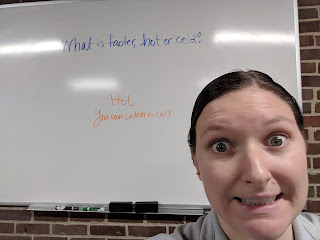 What is faster, hot or cold?
Hot
You can catch a cold